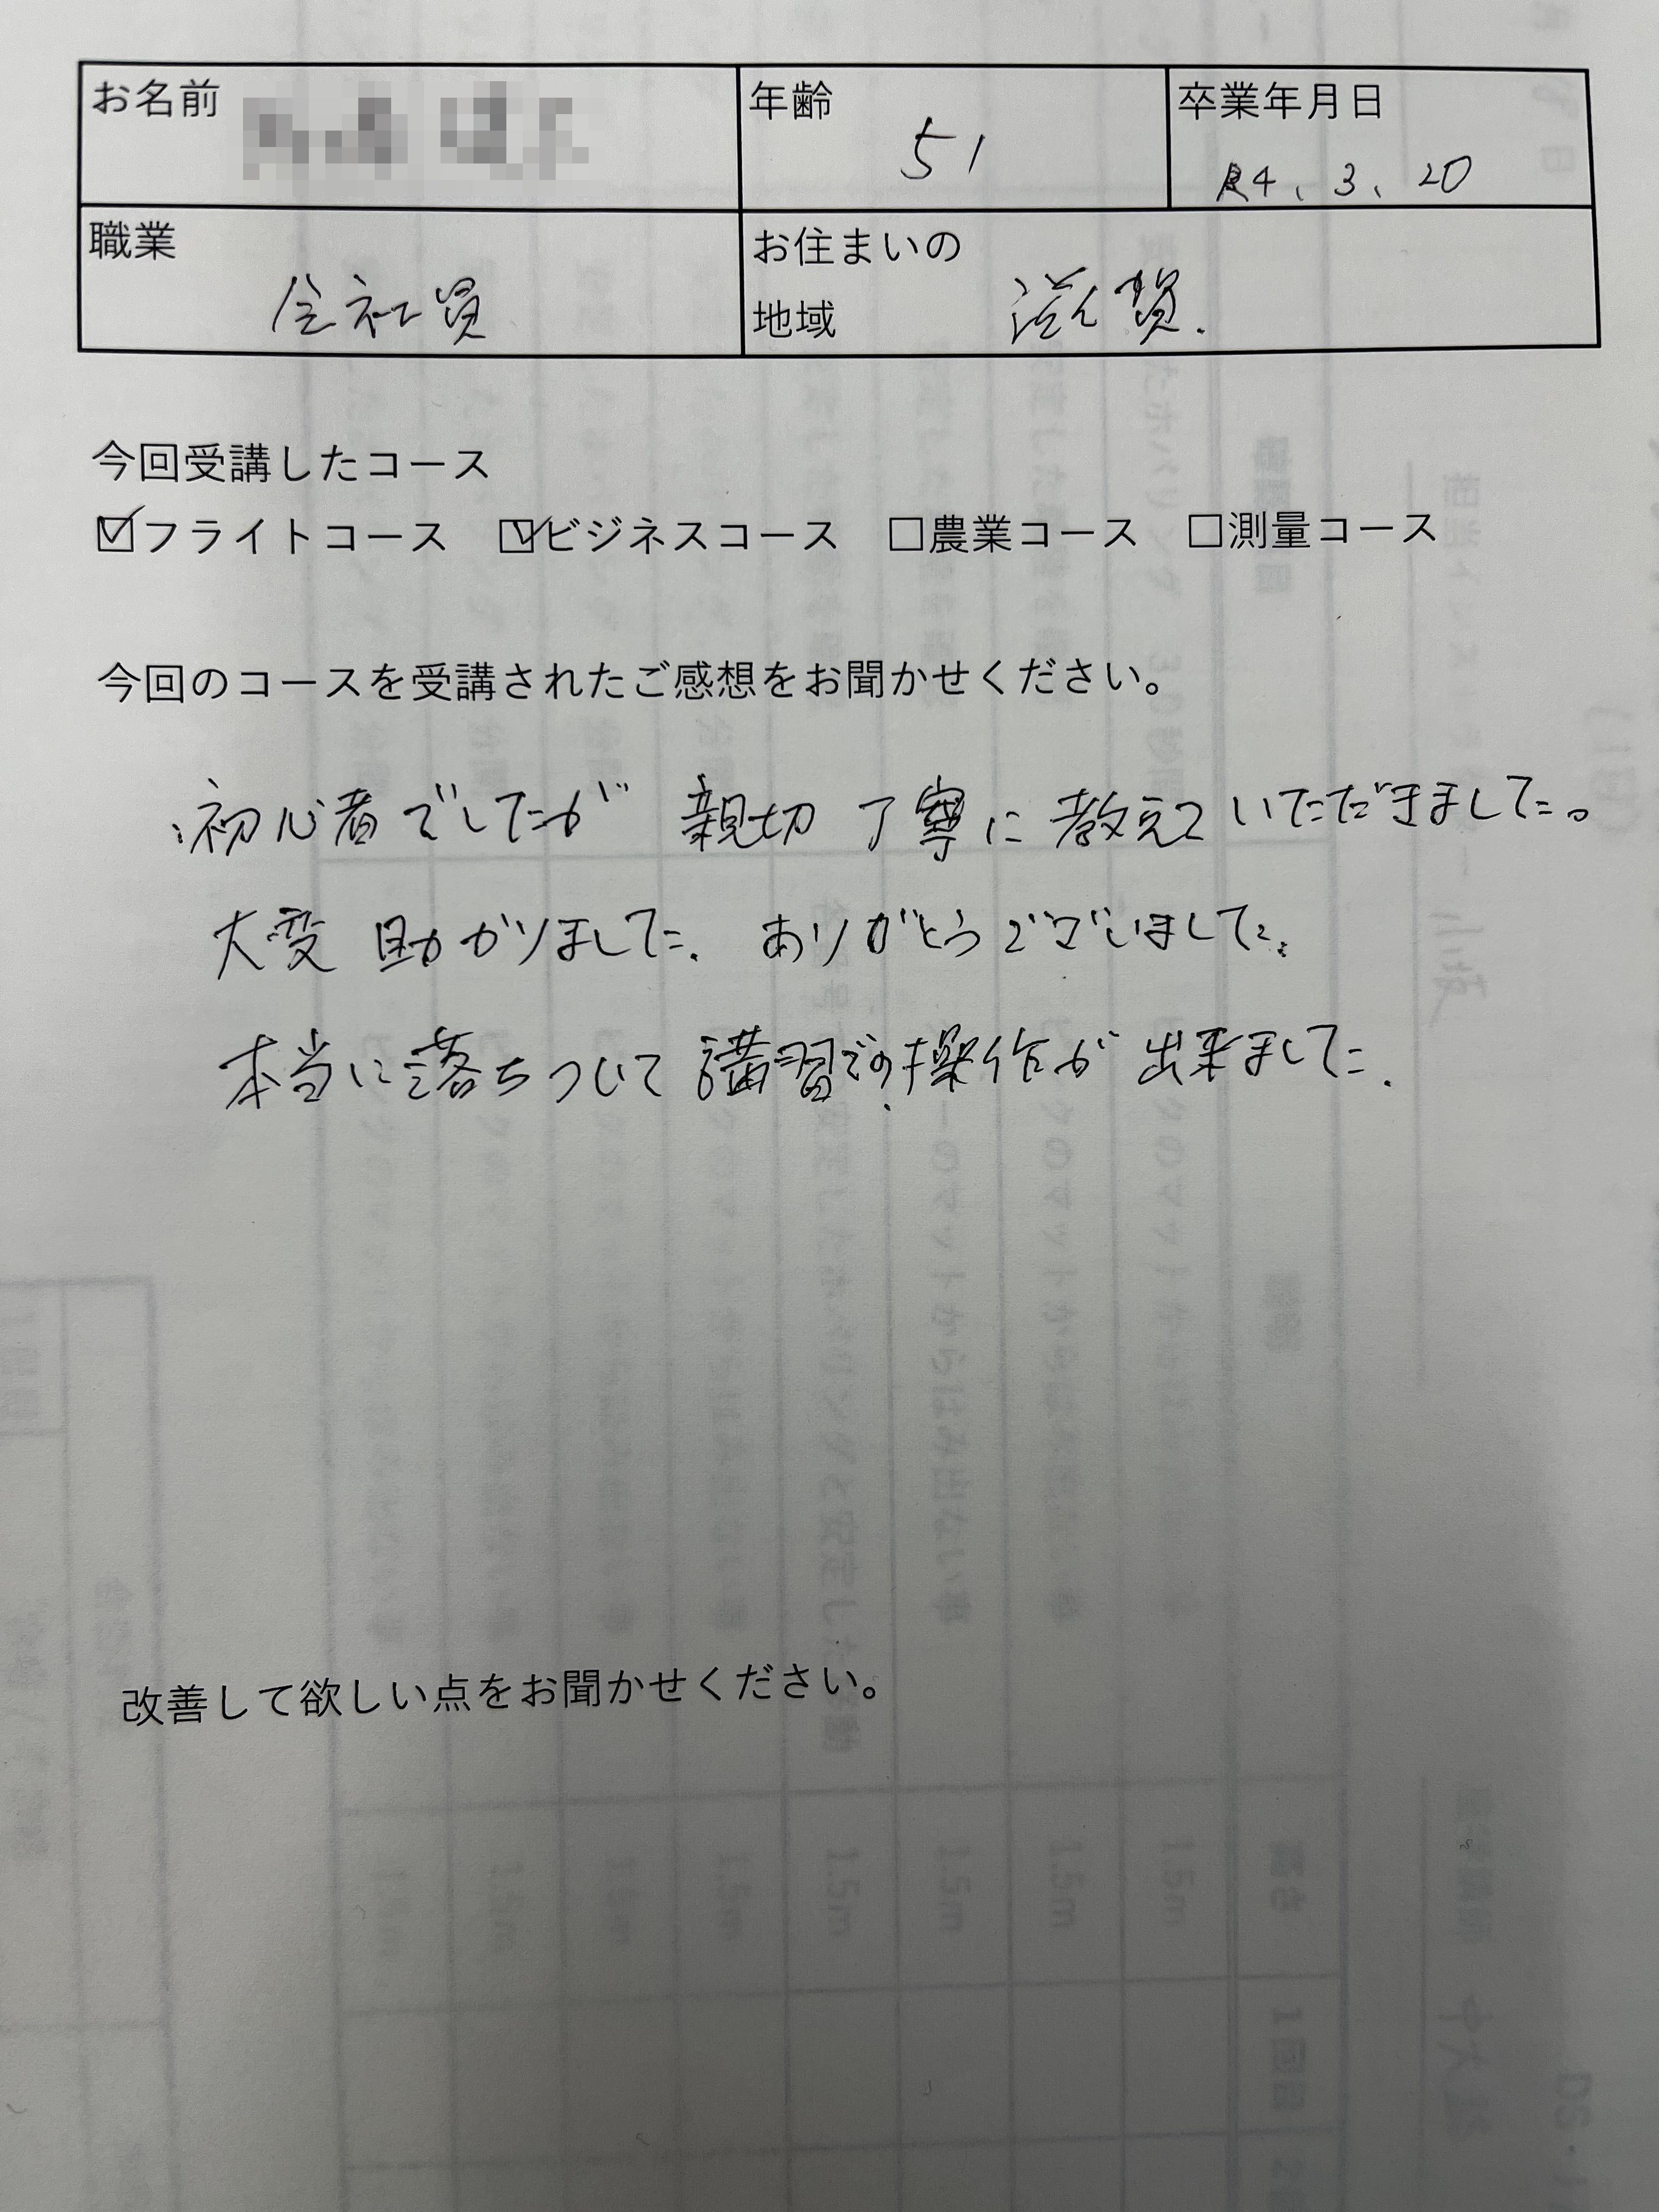 お名前 年齢 51 卒業年月日 R4、3、20
職業 会社員 お住まいの地域 滋賀.
今回受講したコース
☑フライトコース ☑ビジネスコース □農業コース □測量コース
今回のコースを受講されたご感想をお聞かせください。
初心者でしたが 親切 丁寧に教えていただきました。
大変 助かりました. ありがとうございました.
本当に落ちついて講習での操作が出来ました.
改善して欲しい点をお聞かせください。